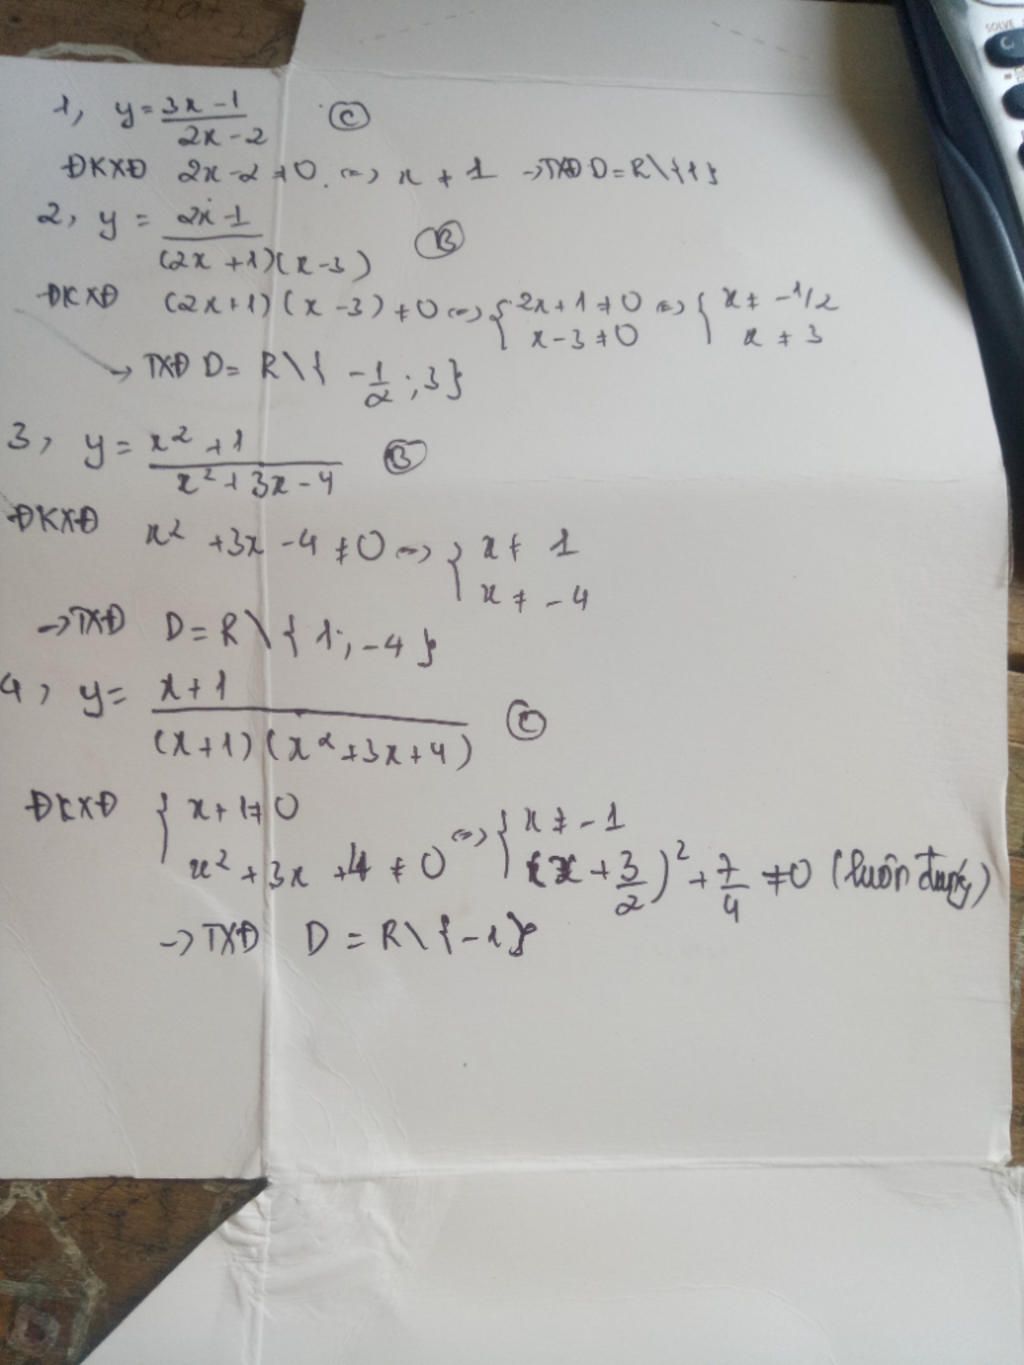 1, y = \frac{3x-1}{2x-2} Ⓒ
ĐKXĐ 2x-2 ≠ 0. <=> x ≠ 1 → TXĐ D = R \ {1}
2, y = \frac{2x-1}{(2x+1)(x-3)} Ⓑ
ĐKXĐ (2x+1)(x-3) ≠ 0 <=> { 2x+1 ≠ 0 <=> { x ≠ -1/2
x-3 ≠ 0 x ≠ 3
→ TXĐ D = R \ { -\frac{1}{2} ; 3 }
3, y = \frac{x^2+1}{x^2+3x-4} Ⓑ
ĐKXĐ x^2+3x-4 ≠ 0 <=> { x ≠ 1
x ≠ -4
→ TXĐ D = R \ { 1 ; -4 }
4, y = \frac{x+1}{(x+1)(x^2+3x+4)} Ⓒ
ĐKXĐ { x+1 ≠ 0 <=> { x ≠ -1
x^2+3x+4 ≠ 0 (x+\frac{3}{2})^2 + \frac{7}{4} ≠ 0 (luôn đúng)
→ TXĐ D = R \ {-1}
SOLVE